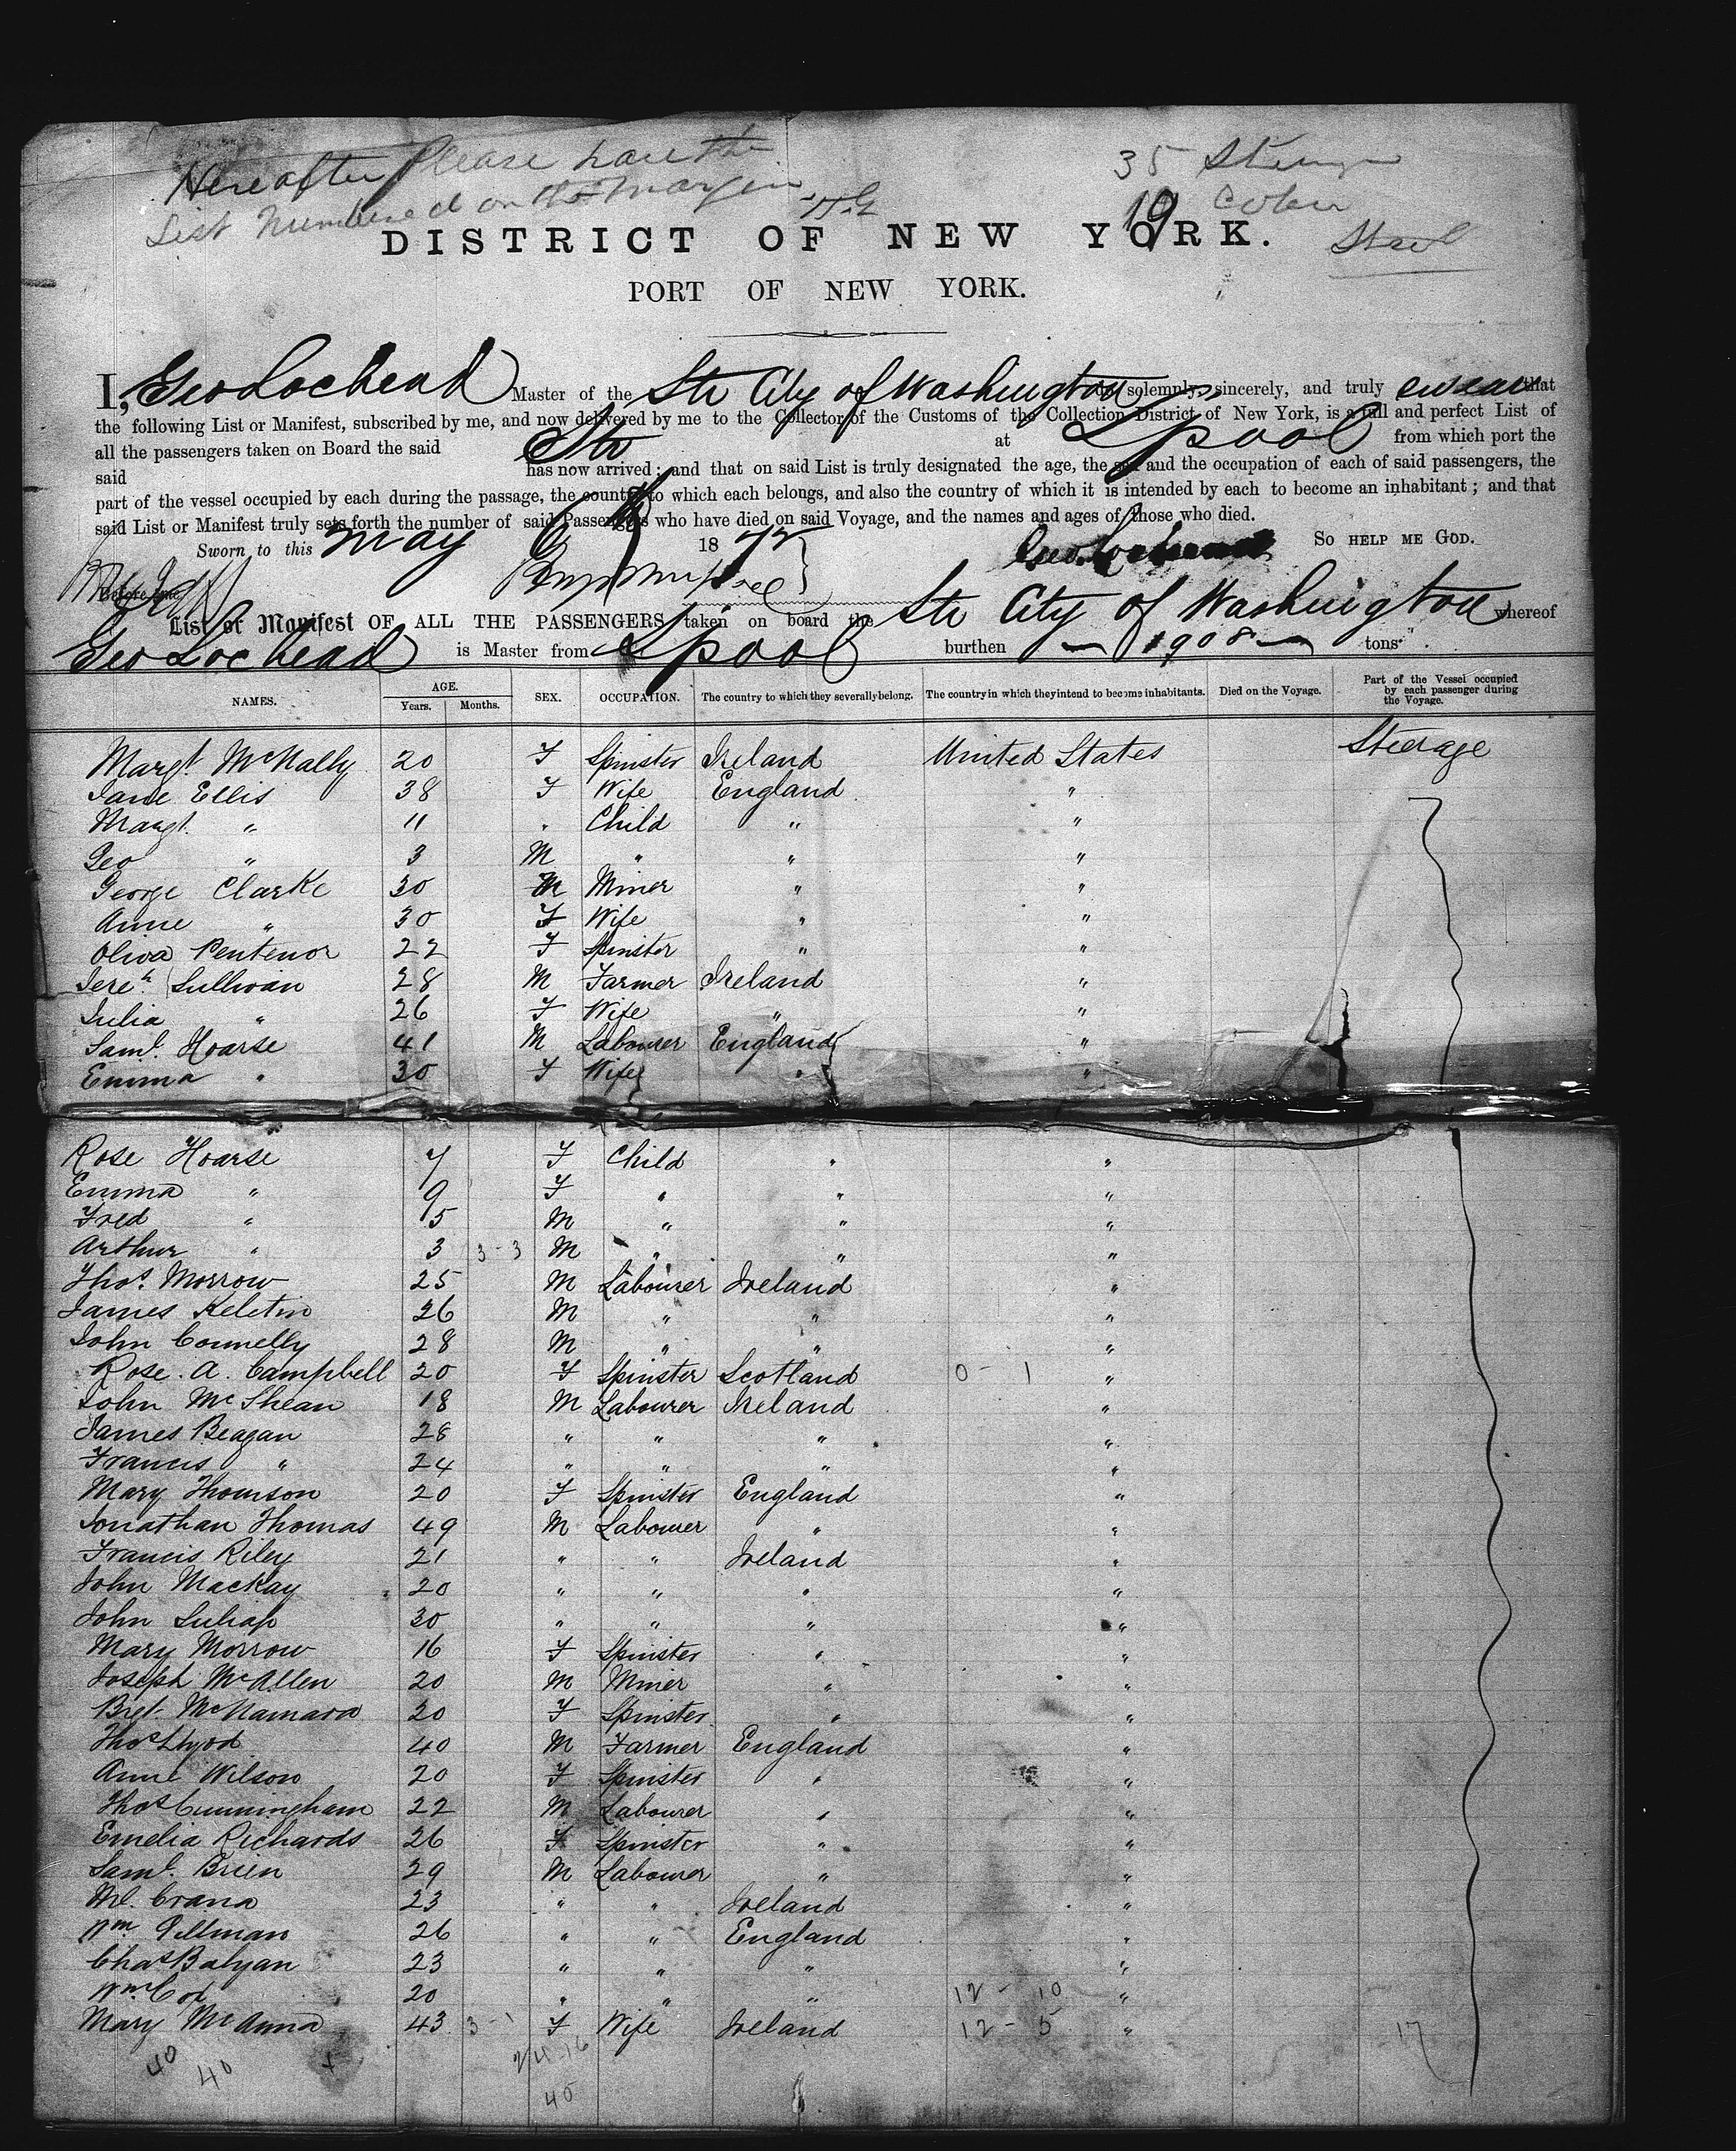 Hereafter Please have the
List Numbered on the Margin
35
19
DISTRICT OF NEW YORK.
PORT OF NEW YORK.
I, Geo Lochead Master of the Str City of Washington solemnly, sincerely, and truly swear that
the following List or Manifest, subscribed by me, and now delivered by me to the Collector of the Customs of the Collection District of New York, is a full and perfect List of
all the passengers taken on Board the said Str at Lpool from which port the
said has now arrived; and that on said List is truly designated the age, the sex and the occupation of each of said passengers, the
part of the vessel occupied by each during the passage, the country to which each belongs, and also the country of which it is intended by each to become an inhabitant; and that
said List or Manifest truly sets forth the number of said Passengers who have died on said Voyage, and the names and ages of those who died.
Sworn to this May 6th 1872 Geo. Lochead SO HELP ME GOD.
Before me
List or Manifest OF ALL THE PASSENGERS taken on board the Str City of Washington whereof
Geo Lochead is Master from Lpool burthen — 1908 — tons
NAMES. AGE. Years. Months. SEX. OCCUPATION. The country to which they severally belong. The country in which they intend to become inhabitants. Died on the Voyage. Part of the Vessel occupied by each passenger during the Voyage.
Margt. McNally 20 F Spinster Ireland United States Steerage
Jane Ellis 38 F Wife England "
Margt. " 11 " Child " "
Geo " 3 M " " "
George Clarke 30 M Miner " "
Anne " 30 F Wife " "
Oliva Pentenor 22 F Spinster " "
Jereh Sullivan 28 M Farmer Ireland "
Julia " 26 F Wife " "
Saml. Hoarse 41 M Labourer England "
Emma " 30 F Wife " "
Rose Hoarse 7 F Child " "
Emma " 9 F " " "
Fred " 5 M " " "
Arthur " 3 3-3 M " " "
Thos. Morrow 25 M Labourer Ireland "
James Keletin 26 M " " "
John Connelly 28 M " " "
Rose. A. Campbell 20 F Spinster Scotland 0-1 "
John McShean 18 M Labourer Ireland "
James Beagan 28 " " " "
Francis " 24 " " " "
Mary Thomson 20 F Spinster England "
Jonathan Thomas 49 M Labourer " "
Francis Riley 21 " " Ireland "
John Mackay 20 " " " "
John 30 " " " "
Mary Morrow 16 F Spinster " "
Joseph McAllen 20 M Miner " "
Bret. McNamara 20 F Spinster " "
Thos Llyod 40 M Farmer England "
Anne Wilson 20 F Spinster " "
Thos Cunningham 22 M Labourer " "
Emelia Richards 26 F Spinster " "
Saml. Brien 29 M Labourer " "
Ml. Crana 23 " " Ireland "
Wm. Gillman 26 " " England "
Chas Balyan 23 " " " "
Wm Cox 20 " " " 12-10 "
Mary McAnna 43 3-1 F Wife Ireland 12-5 " 17
40 40 + 24-16
40